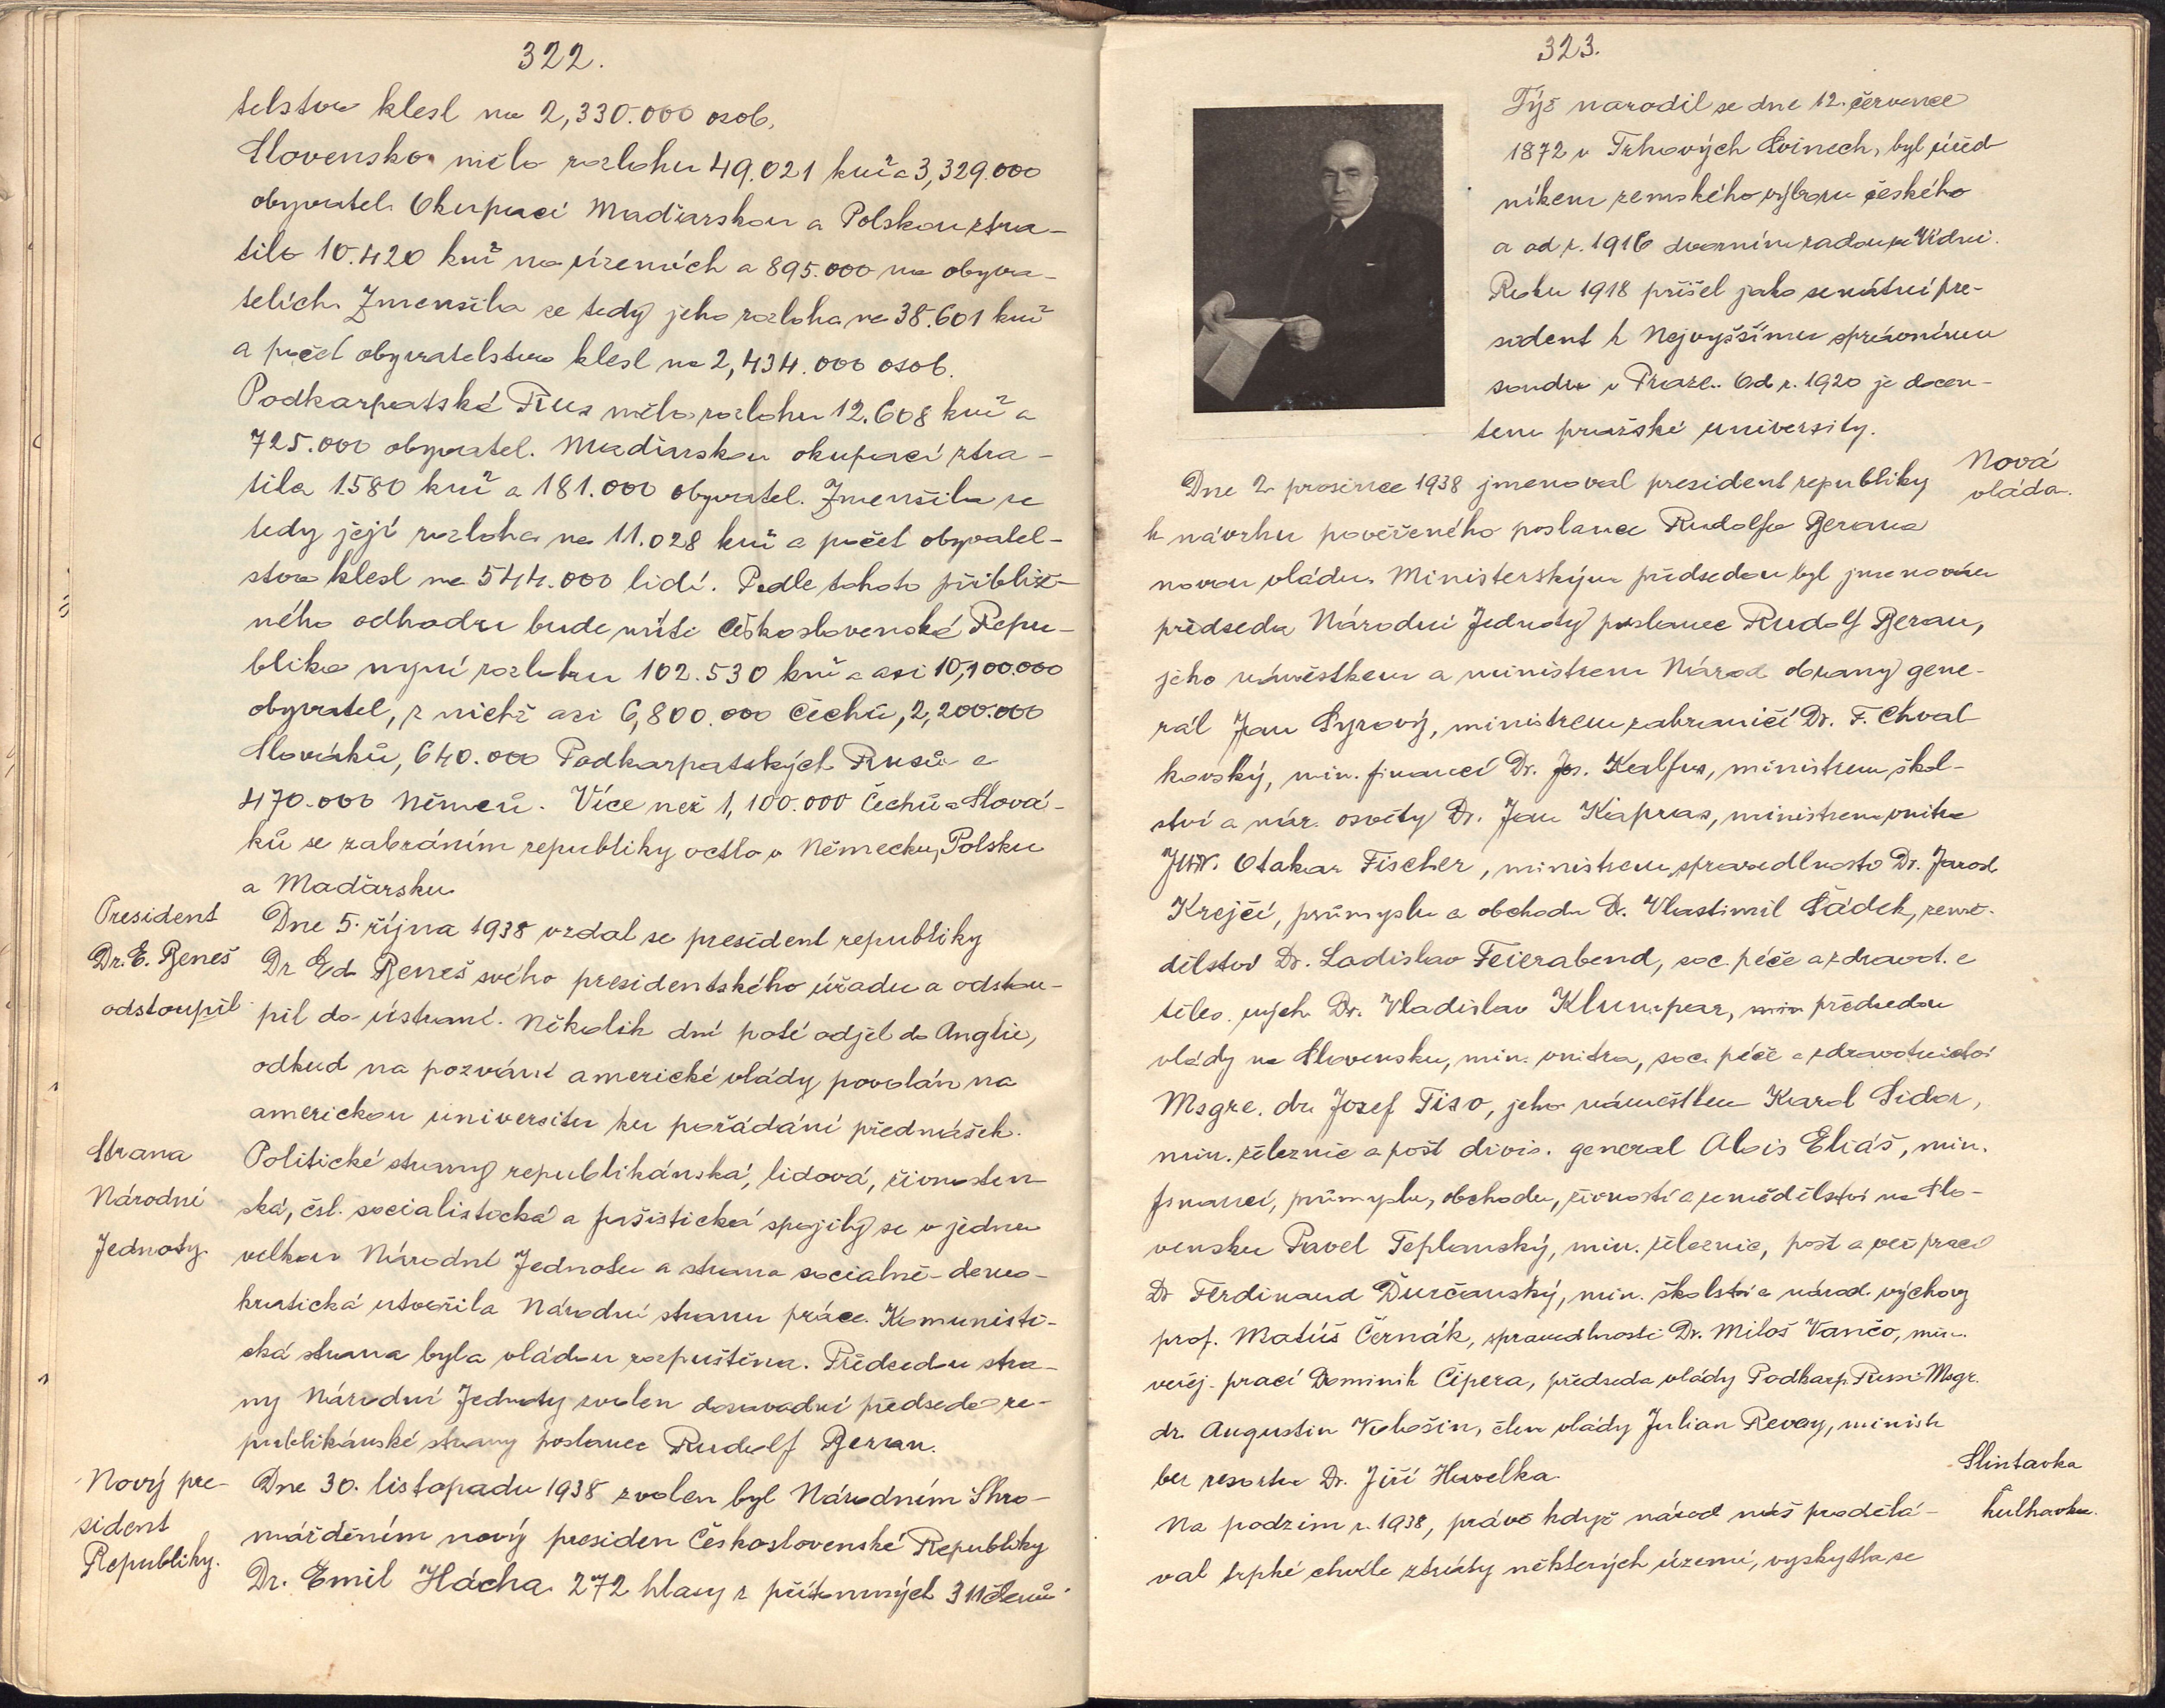 322.
telstva klesl na 2,330.000 osob.
Slovensko mělo rozlohu 49.021 km² a 3,329.000
obyvatel. Okupací Maďarskou a Polskou ztra-
tilo 10.420 km² na územích a 895.000 na obyva-
telích. Zmenšila se tedy jeho rozloha na 38.601 km²
a počet obyvatelstva klesl na 2,434.000 osob.
Podkarpatská Rus měla rozlohu 12.608 km² a
725.000 obyvatel. Maďarskou okupací ztra-
tila 1580 km² a 181.000 obyvatel. Zmenšila se
tedy její rozloha na 11.028 km² a počet obyvatel-
stva klesl na 544.000 lidí. Podle tohoto přibliž-
ného odhadu bude míti Československá Repu-
blika nyní rozlohu 102.530 km² a asi 10,100.000
obyvatel, z nichž asi 6,800.000 Čechů, 2,200.000
Slováků, 640.000 Podkarpatských Rusů a
470.000 Němců. Více než 1,100.000 Čechů a Slová-
ků se zabráním republiky octlo v Německu, Polsku
a Maďarsku.
President
Dr. E. Beneš
odstoupil.
Dne 5. října 1938 vzdal se president republiky
Dr Ed. Beneš svého presidentského úřadu a odstou-
pil do ústraní. Několik dní poté odjel do Anglie,
odkud na pozvání americké vlády povolán na
americkou universitu ku pořádání přednášek.
Strana
Národní
Jednoty.
Politické strany republikánská, lidová, živnosten
ská, čsl. socialistická a fašistická spojily se v jednu
velkou Národní Jednotu a strana socialně-demo-
kratická utvořila Národní stranu práce. Komunisti-
cká strana byla vládou rozpuštěna. Předsedou stra-
ny Národní Jednoty zvolen dosavadní předseda re-
publikánské strany poslanec Rudolf Beran.
Nový pre-
sident
Republiky.
Dne 30. listopadu 1938 zvolen byl Národním Shro-
mážděním nový presiden Československé Republiky
Dr. Emil Hácha 272 hlasy z přítomných 311 členů.
323.
Týž narodil se dne 12. července
1872 v Trhových Svinech, byl úřed
níkem zemského výboru českého
a od r. 1916 dvorním radou ve Vídni.
Roku 1918 přišel jako senátní pre-
sident k Nejvyššímu správnímu
soudu v Praze. Od r. 1920 je docen-
tem pražské university.
Nová
vláda.
Dne 2. prosince 1938 jmenoval president republiky
k návrhu pověřeného poslance Rudolfa Berana
novou vládu. Ministerským předsedou byl jmenován
předseda Národní Jednoty poslanec Rudolf Beran,
jeho náměstkem a ministrem Národ. obrany gene-
rál Jan Syrový, ministrem zahraničí Dr. F. Chval-
kovský, min. financí Dr. Jos. Kalfus, ministrem škol-
ství a nár. osvěty Dr. Jan Kapras, ministrem vnitra
JUDr. Otakar Fischer, ministrem spravedlnosto Dr. Jarosl.
Krejčí, průmyslu a obchodu Dr. Vlastimil Šádek, země-
dělství Dr. Ladislav Feierabend, soc. péče a zdravot. a
těles. vých. Dr. Vladislav Klumpar, min předsedou
vlády na Slovensku, min. vnitra, soc. péče a zdravotnictví
Msgre. dr. Josef Tiso, jeho náměstkem Karol Sidor,
min. železnic a pošt divis. general Alois Eliáš, min.
financí, průmyslu, obchodu, živností a zemědělství na Slo-
vensku Pavel Teplanský, min. železnic, pošt a veř. prací
Dr Ferdinand Ďurčanský, min. školství a národ. výchovy
prof. Matúš Černák, spravedlnosti Dr. Miloš Vančo, min.
veřej. prací Dominik Čipera, předseda vlády Podkarp. Rusi Msgr.
dr. Augustin Vološin, člen vlády Julian Revay, ministr
bez resortu Dr. Jiří Havelka.
Slintavka
kulhavka.
Na podzim r. 1938, právě když národ náš prodělá-
val trpké chvíle ztráty některých území, vyskytla se